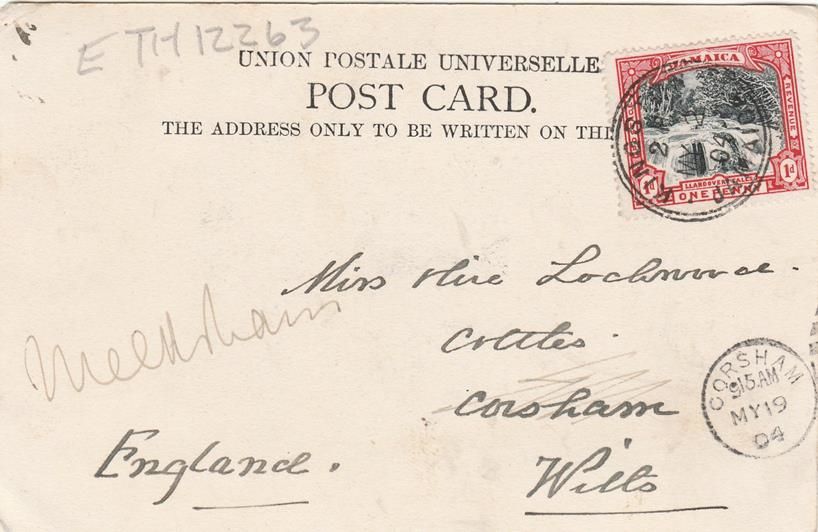 ETH12263
UNION POSTALE UNIVERSELLE
POST CARD.
THE ADDRESS ONLY TO BE WRITTEN ON THI
JAMAICA
REVENUE
1d
1d
LLANDOVERY FALLS
ONE PENNY
KINGSTON
JAMAICA
MY
2
04
Miss
Cottles.
Corsham
Wilts
England.
Melksham
CORSHAM
915.AM
MY19
04